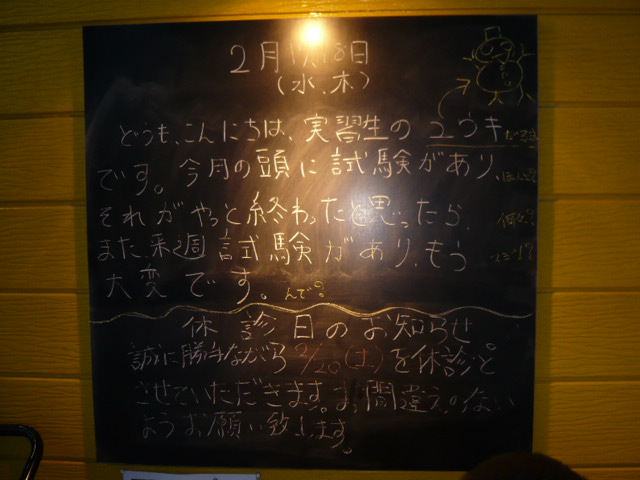 2月17.18日
(水.木)
どうも、こんにちは、実習生のユウキ
です。今月の頭に試験があり、ほんで?
それがやっと終わったと思ったら、
また来週試験があり、もう
大変です。んで?
休診日のお知らせ
誠に勝手ながら2/20(土)を休診と
させていただきます。お間違えのない
ようお願い致します。